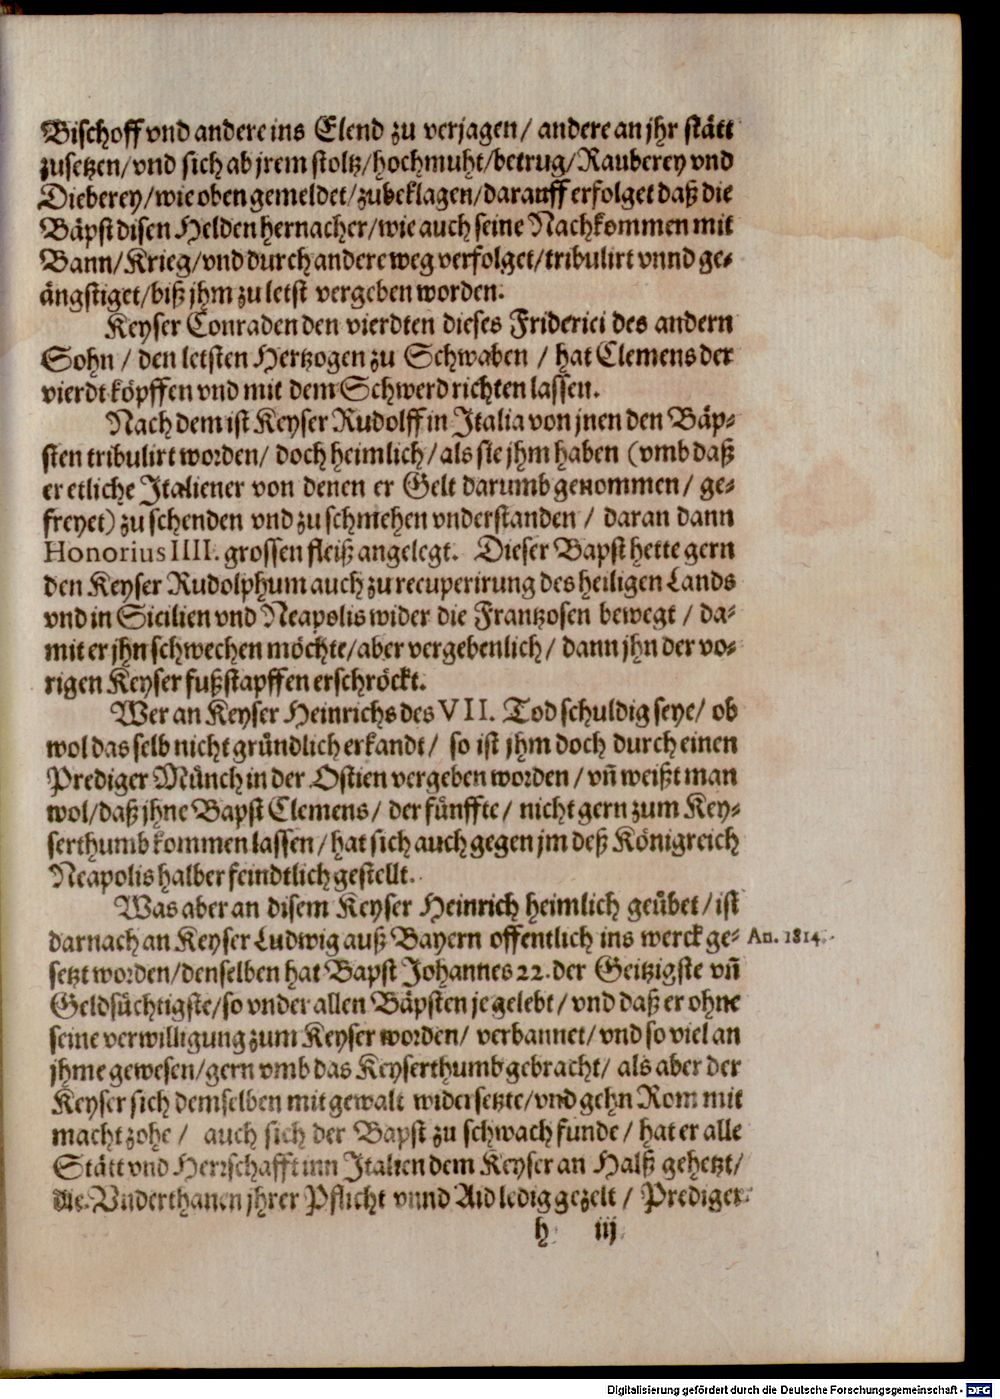 Bischoff vnd andere ins Elend zu verjagen/ andere an jhr stätt
zusetzen/ vnd sich ab jrem stoltz/ hochmuht/ betrug/ Rauberey vnd
Dieberey/ wie oben gemeldet/ zubeklagen/ darauff erfolget daß die
Bäpst disen Helden hernacher/ wie auch seine Nachkommen mit
Bann/ Krieg/ vnd durch andere weg verfolget/ tribulirt vnnd ge-
ängstiget/ biß jhm zu letst vergeben worden.
Keyser Conraden den vierdten dieses Friderici des andern
Sohn / den letsten Hertzogen zu Schwaben / hat Clemens der
vierdt köpffen vnd mit dem Schwerd richten lassen.
Nach dem ist Keyser Rudolff in Italia von jnen den Bäp-
sten tribulirt worden/ doch heimlich/ als sie jhm haben (vmb daß
er etliche Italiener von denen er Gelt darumb genommen/ ge-
freyet) zu schenden vnd zu schmehen vnderstanden / daran dann
Honorius IIII. grossen fleiß angelegt. Dieser Bapst hette gern
den Keyser Rudolphum auch zu recuperirung des heiligen Lands
vnd in Sicilien vnd Neapolis wider die Frantzosen bewegt / da-
mit er jhn schwechen möchte/ aber vergebenlich/ dann jhn der vo-
rigen Keyser fußstapffen erschröckt.
Wer an Keyser Heinrichs des VII. Tod schuldig seye/ ob
wol das selb nicht gründlich erkandt/ so ist jhm doch durch einen
Prediger Münch in der Ostien vergeben worden/ vñ weißt man
wol/ daß jhne Bapst Clemens/ der fünffte/ nicht gern zum Key-
serthumb kommen lassen/ hat sich auch gegen jm deß Königreich
Neapolis halber feindtlich gestellt.
Was aber an disem Keyser Heinrich heimlich geübet/ ist
darnach an Keyser Ludwig auß Bayern offentlich ins werck ge- An. 1314.
setzt worden/ denselben hat Bapst Johannes 22. der Geitzigste vñ
Geldsüchtigste/ so vnder allen Bäpsten je gelebt/ vnd daß er ohne
seine verwilligung zum Keyser worden/ verbannet/ vnd so viel an
jhme gewesen/ gern vmb das Keyserthumb gebracht/ als aber der
Keyser sich demselben mit gewalt widersetzte/ vnd gehn Rom mit
macht zohe / auch sich der Bapst zu schwach funde/ hat er alle
Stätt vnd Herrschafft inn Italien dem Keyser an Halß gehetzt/
die Vnderthanen jhrer Pflicht vnnd Aid ledig gezelt / Prediger
h iij
Digitalisierung gefördert durch die Deutsche Forschungsgemeinschaft - DFG